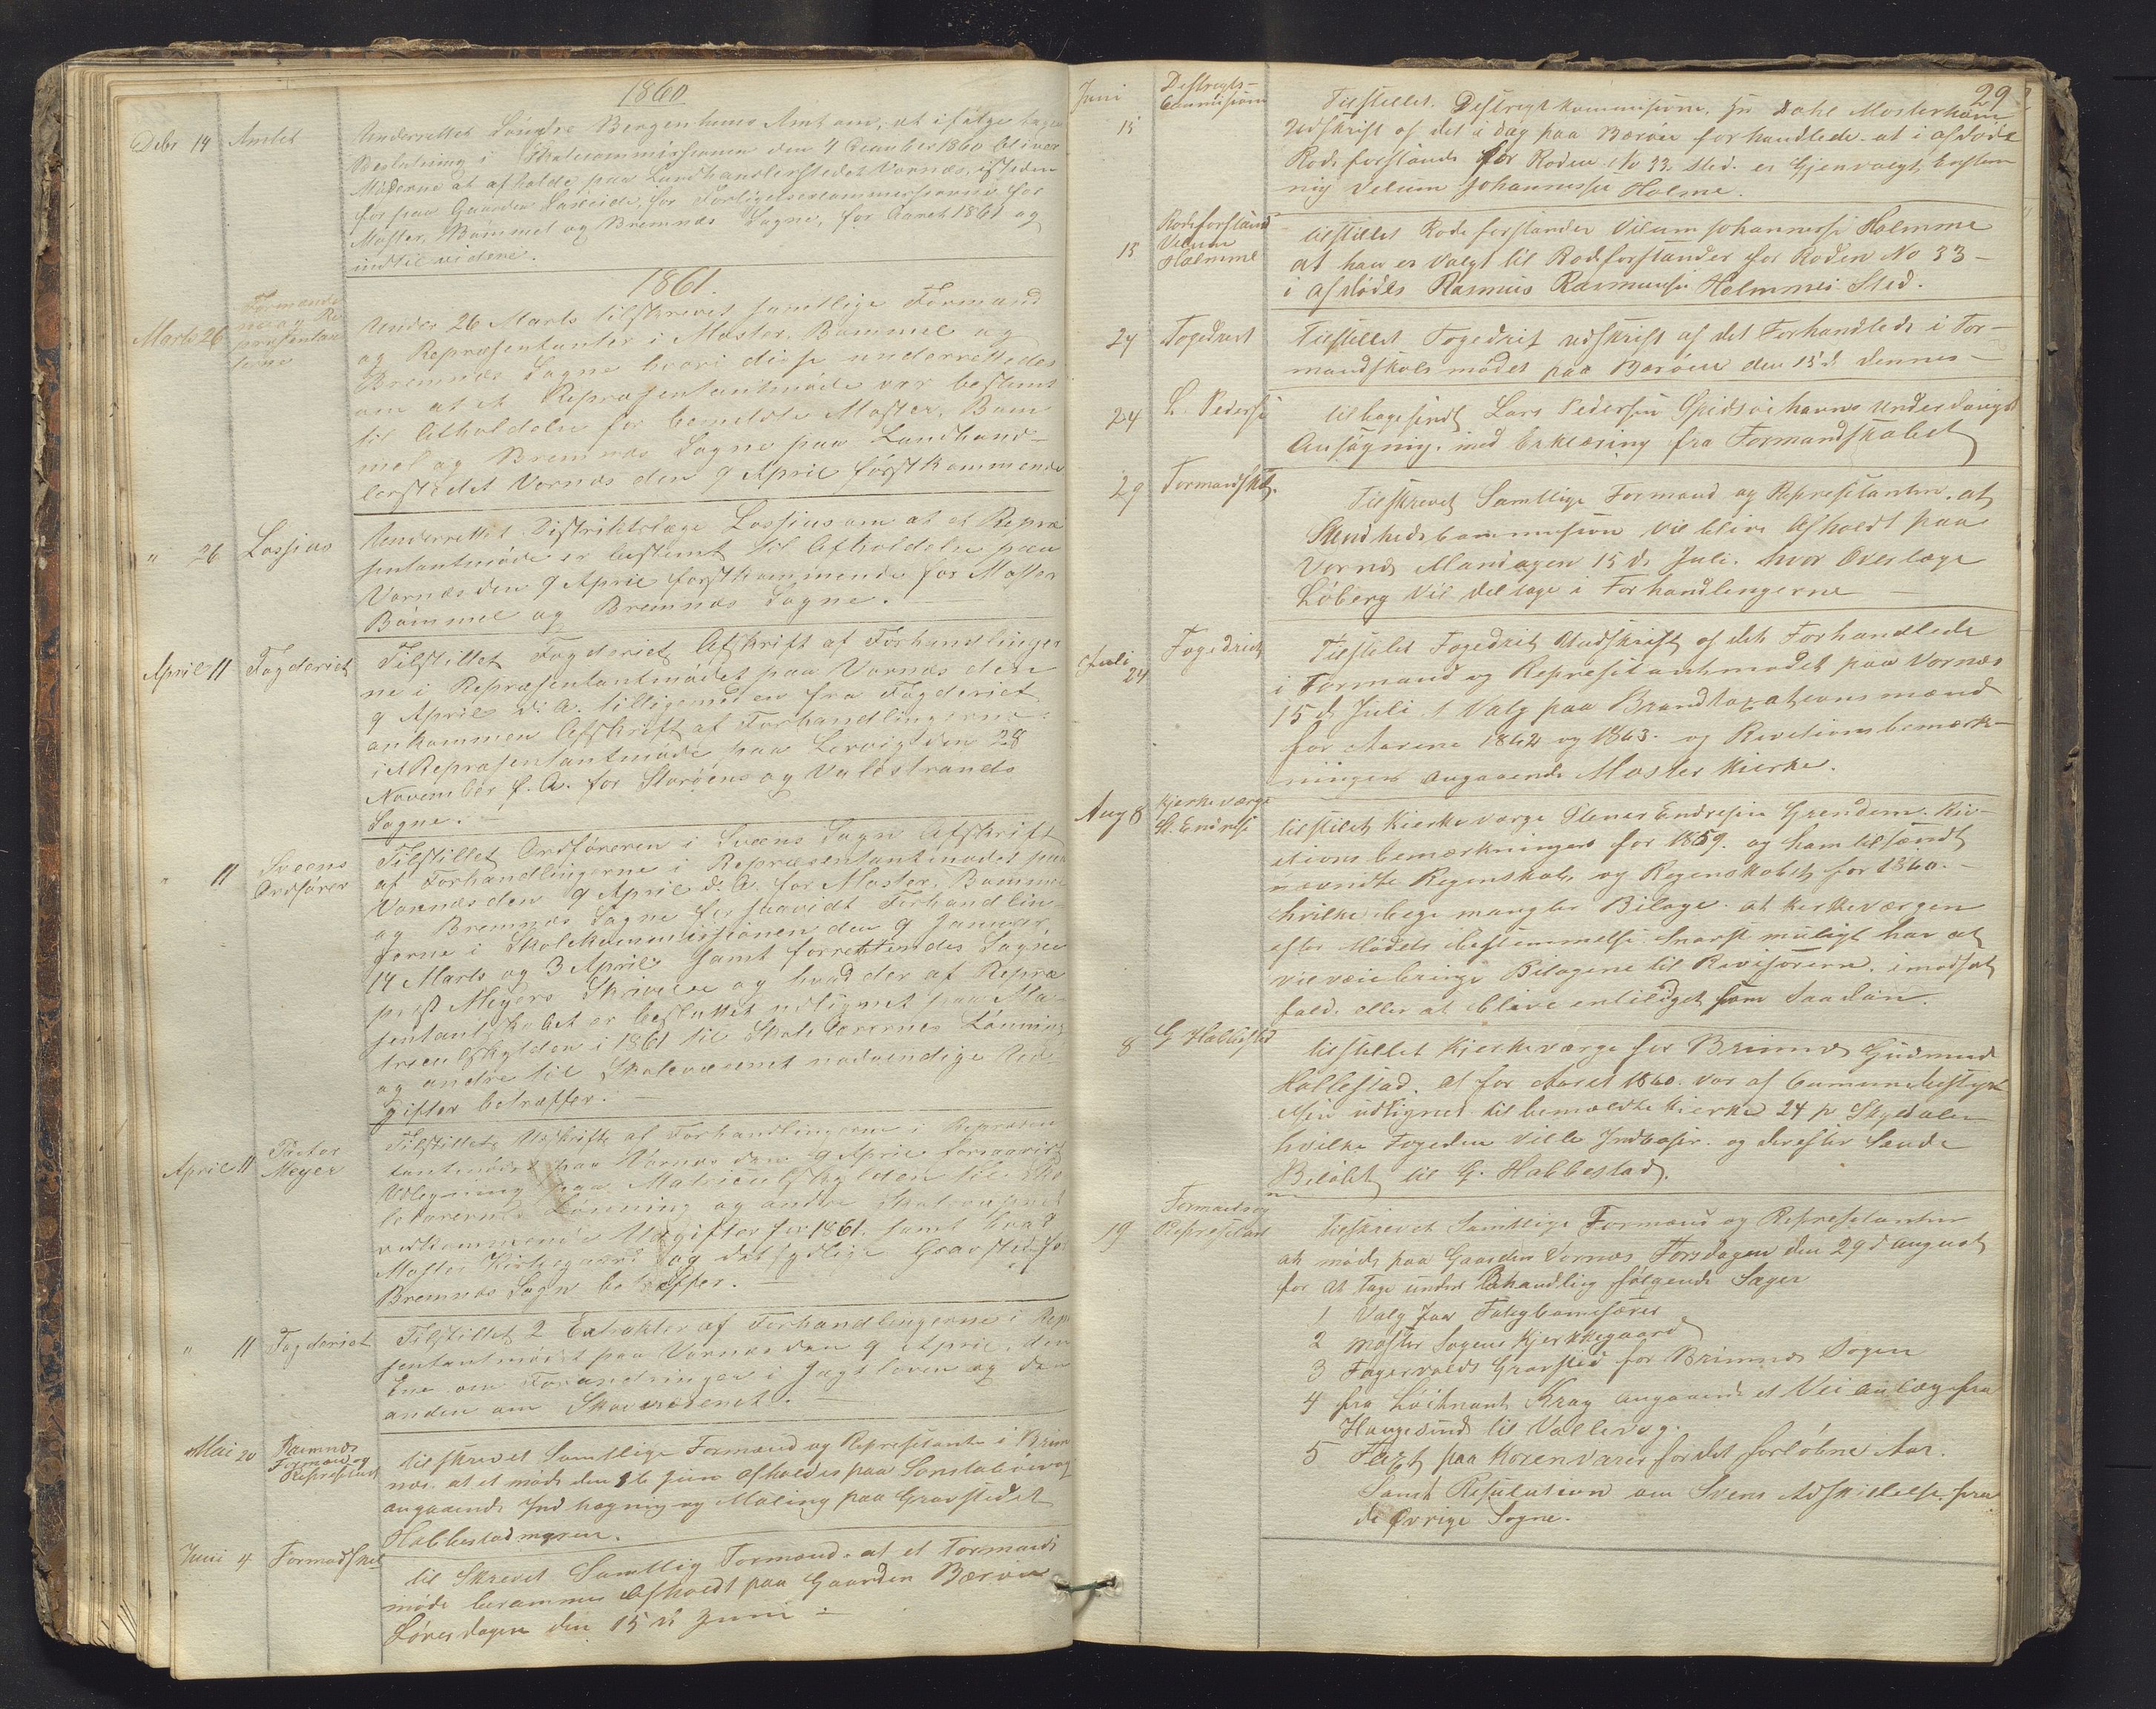 1860
Debr 14 Amtet Underrettet Søndre Bergenhuus Amt om, at ifølge tagen
Beslutning i Skolecommissionen den 4 December 1860 bliver
Møderne at afholde paa Landhanlerstedet Vornæs, isteden
for paa Gaarden for Forligelsescommissionen for
Moster, Bømmel og Bremnæs Sogne, for Aaret 1861 og
indtil videre.
1861.
Marts 26 Formænde
ne og Re
præsentan
terne
Under 26 Marts tilskrevet samtlige Formænd
og Repræsentanter i Moster, Bømmel og
Bremnæs Sogne hvori disse underrettedes
om at et Repræsentantmøde var bestemt
til Afholdelse for bemeldte Moster, Bøm
mel og Bremnæs Sogne paa Landhand-
lerstedet Vornæs den 9 April førstkommende
" 26 Lossius Underrettet Distriktslæge Lossius om at et Repræ
sentantmøde er bestemt til Afholdelse paa
Vornæs den 9 April førstkommende for Moster
Bømmel og Bremnæs Sogne. —
April 11 Fogderiet Tilstillet Fogderiet Afskrift af Forhandlinger
ne i Repræsentantmødet paa Vornæs den
9 April d: A. tilligemed en fra Fogderiet
ankommen Afskrift af Forhandlingerne
i et Repræsentantmøde paa Lervig den 28
November f. A. for Storøens og Valestrands
Sogne. —
" 11 Sveens
Ordfører
Tilstillet Ordføreren i Sveens Sogn Afskrift
af Forhandlingerne i Repræsentantmødet paa
Vornæs den 9 April d. A. for Moster, Bømmel
og Bremnæs Sogne forsaavidt Forhandlin
gerne i Skolekommissionen den 9 Januar,
14 Marts og 3 April samt forrettendes Sogne
præst Meyers Skrivelse og hvad der af Repræ
sentantskabet er besluttet udlignet paa Ma-
triculskylden i 1861 til Skolelærernes Lønning
og andre til Skolevæsenet nødvendige Ud
gifter betræffer. —
April 11 Pastor
Meyer
Tilstillet Udskrift af Forhandlingerne i Repræsen
tantmødet paa Vornæs den 9 April forsaavidt
Udligning paa Matriculskylden til Sko
lelærernes Lønning og andre Skolevæsenet
vedkommende Udgifter for 1861. samt hvad
Moster Kirkegaard og det sydlige Gravsted for
Bremnæs Sogn betræffer. —
" 11 Fogderiet Tilstillet 2 Extrakter af Forhandlingerne i Repræ
sentantmødet paa Vornæs den 9 April, den
Ene om Forandringer i Jagtloven og den
anden om Skovvæsenet. —
Mai 20 Bremnæs
Formænd og
Represetant
tilskrevet Samtlige Formænd og Represetante i Brim
næs. at et møde den 16 Juni afholdes paa
angaaende Indhegning og Maling paa Gravstedet
Habbestadmyren.
Juni 4 Formadskab til Skrevet Samtlig Formænd. at et Formands
møde berammes Afholdt paa Gaarden Bærøen
Lørerdagen den 15 de Juni —
29
Juni
15
Destregts-
Commisjion
Tilstillet. Destregtkommisione. Hr Dahl Mosterhavn
Udskrift af det i dag paa Bærøen forhandlede. at i afdøde
Rodeforstands for Roden No 33. sted. er Gjenvalgt
Velum Johannesse Holme.
15 Rodeforstand
Velum
Holmme
tilstillet Rodeforstander Vilum Johannesse Holmme
at han er valgt til Rodeforstander for Roden No 33 —
i afdødes Rasmus Rasmussen Holmmes Sted.
24 Fogedriet Tilstillet Fogedriet udskrift af det Forhandlede i For-
mandskabsmødet paa Bærøen den 15 d. dennes —
24 L. Pederse tilbagesendt Lars Pedersen underdanigst
Ansøgning. med Erklæring fra Formandskabet
29 Formandskb. Tilskrevet Samtlige Formænd og Represetanter. at
Sundhedscommission vil blive Afholdt paa
Vornæs Mandagen 15 d. Juli. hvor Overlæge
Løberg vil deltage i Forhandlingerne —
Juli 24 Fogedriet Tilstilet Fogedriet Uudskrift af det Forhandlede
i Formænd og Represetantmødet paa Vornæs
15 d Juli 1 Valg paa Brandtaxationsmænd
for Aarene 1862 og 1863. og Revitionsbemærk-
ninger Angaaende Moster Kierke.
Aug 8 Kjerkeværge
St. Endrese
tilstilet Kierkeværge Stener Endresen Grendem. Riv-
itions bemærkninger for 1859. og ham tilsændt
nævndte Regenskab, og Regenskabet for 1860. —
hvilke bege mangler Bilage. at Kierkeværgen
efter Mødets bestemmelse snarst muligt har at
Bilagene til Revisoren. i modsat
fald. eller at blive entlediget som Saadan.
8 G Habbestad tilstillet Kierkeværge for Brimnæs Gudmund
Habbestad. at for Aaret 1860. var af
udlignet til bemældte Kierke 24 p Skydaler
hvilke Fogeden ville Indkasir. og derefter Sende
Beløbet til G. Habbestad.
19 Formænd og
Represetant
Tilskrevet Samtlige Formænd og Represetanter
at møde paa Gaarden Vornæs Torsdagen den 29 d August
for at tage under Behandlig følgende Sager
1 Valg paa
2 Moster Sogens Kjerkkegaard
3 Fagervolds Gravsted for Brimnæs Sogen
4 fra Løitnant Krag angaaende et Vei anlæg fra
Haugesund til Vallevag.
5 Taxt paa Korenvarer for det forløbne Aar.
Samt Resulution om Svens Adskillelse fra
de Øvrige Sogne.